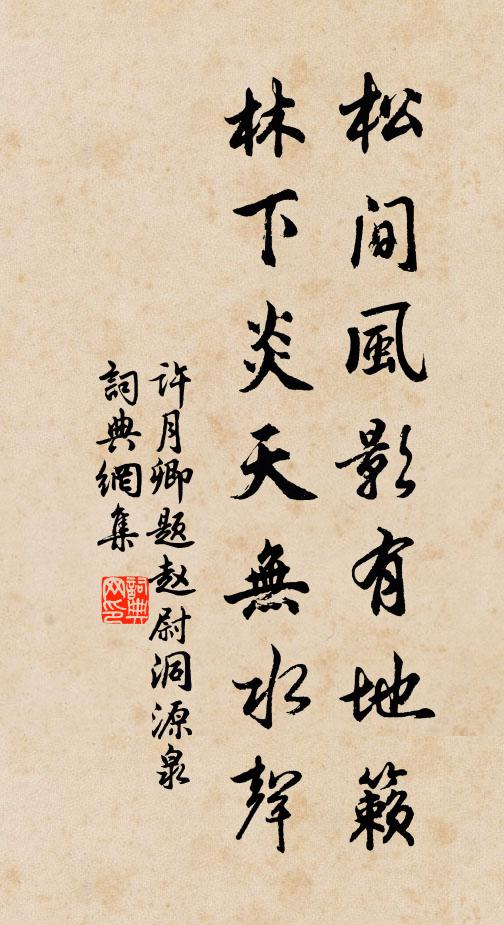 松間風影有地籟
林下炎天無水聲
許月卿題赵尉洞源泉
詞典網集
詞典网印